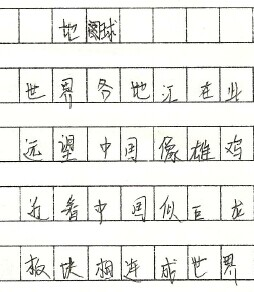 地球
世界各地汇在此
远望中国像雄鸡
近看中国似巨龙
板块相连成世界